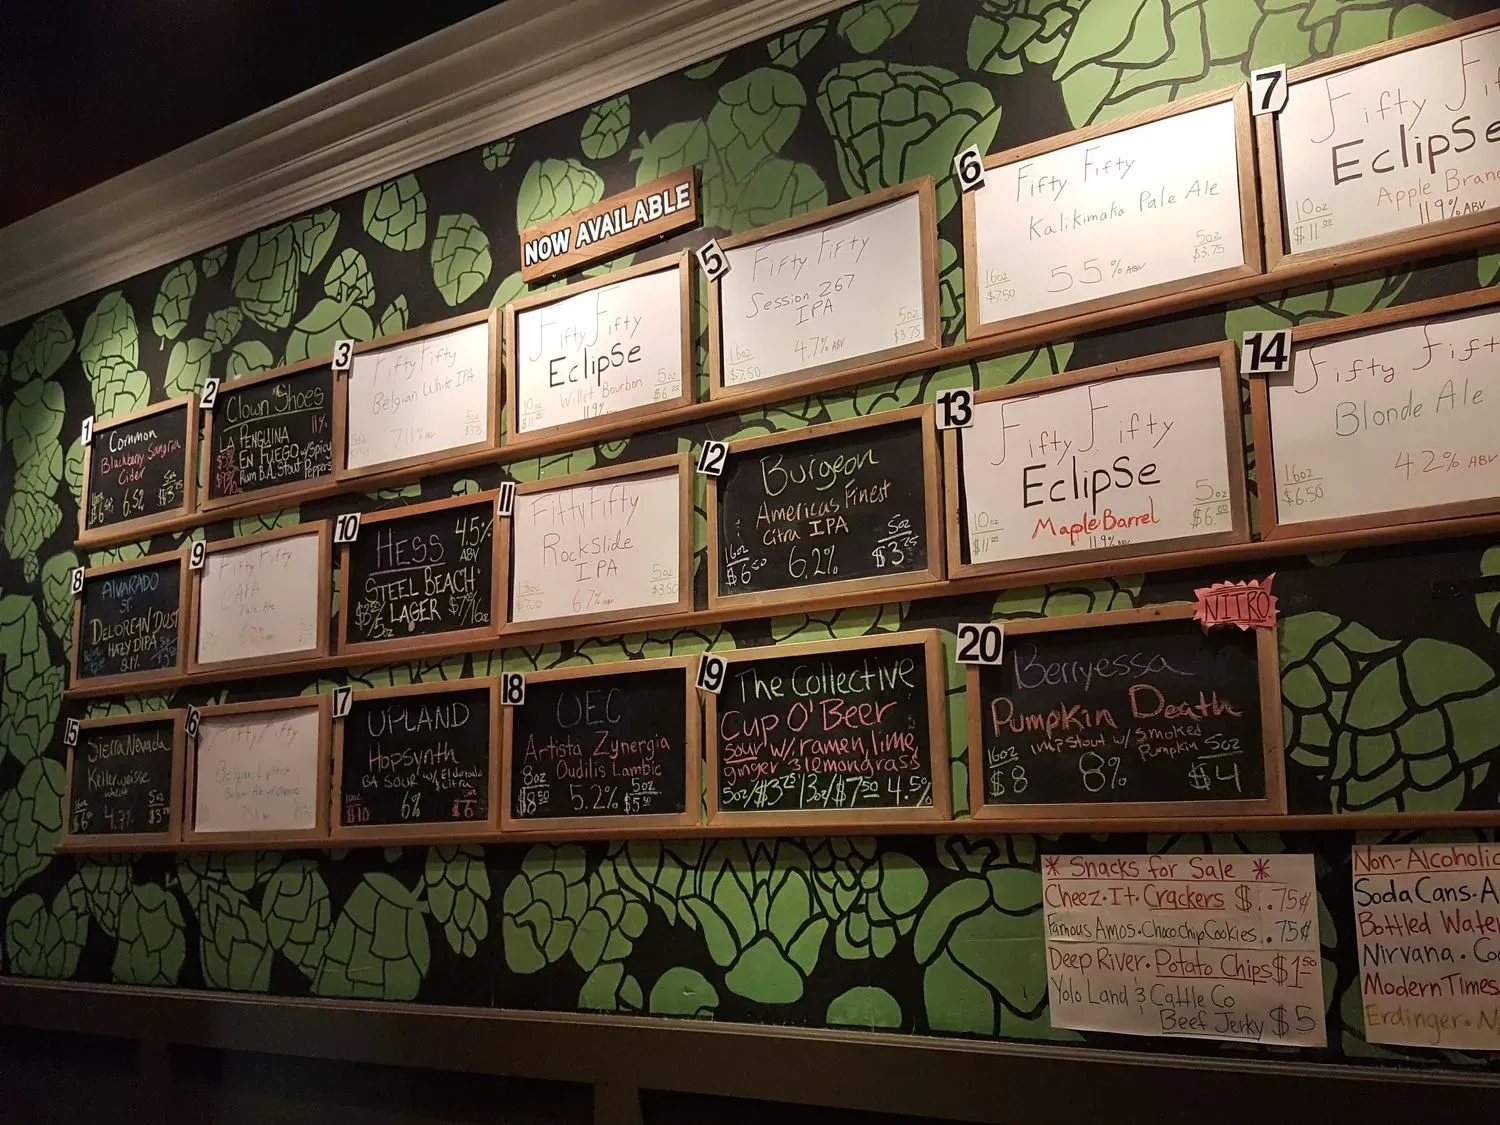 NOW AVAILABLE
1
Common
Blackberry Sangria
Cider
6.52
2
Clown Shoes
11%
LA PENGUINA
EN FUEGO w/Spicy
Rum B.A. Stout Peppers
3
Fifty Fifty
Belgian White IPA
Fifty Fifty
EclipSe
Willet Bourbon
10oz
5oz
11.9%
5
Fifty Fifty
Session 267
IPA
16oz
$7.50
4.7% ABV
5oz
$3.75
6
Fifty Fifty
Kalikimaka Pale Ale
16oz
$7.50
5.5% ABV
5oz
$3.75
7
Fifty
EclipSe
Apple
10oz
$11.00
11.9% ABV
8
ALVARADO
ST.
DELOREAN DUST
HAZY DIPA
9
Fifty Fifty
Pale Ale
10
HESS
4.5%
ABV
STEEL BEACH
LAGER
11
Fifty Fifty
RockSlide
IPA
6.7%
5oz
$3.50
12
Burgeon
Americas Finest
Citra IPA
16oz
6.2%
5oz
$3.25
13
Fifty Fifty
EclipSe
Maple Barrel
10oz
$11.00
11.9% ABV
5oz
$6.00
14
Fifty
Blonde Ale
16oz
$6.50
4.2% ABV
15
Sierra Nevada
Kellerweisse
wheat
4.7%
Fifty Fifty
17
UPLAND
Hopsynth
BA SOUR w/ Eldorado
& Citra
$10
6%
$6
18
OEC
Artista Zynergia
Oudilis Lambic
8oz
$8.50
5.2%
5oz
$5.50
19
The Collective
Cup O' Beer
Sour w/ ramen, lime,
ginger & lemongrass
5oz/$3.75/13oz/$7.50 4.5%
20
NITRO
Berryessa
Pumpkin Death
imp stout w/ smoked
Pumpkin
16oz
$8
8%
5oz
$4
* Snacks for Sale *
Cheez·It· Crackers $..75¢
Famous Amos·Choco.chip Cookies..75¢
Deep River· Potato Chips $1.50
Yolo Land & Cattle Co
Beef Jerky $5
Non-Alcoholic
Soda Cans·
Bottled Water
Nirvana·
Modern Times
Erdinger·